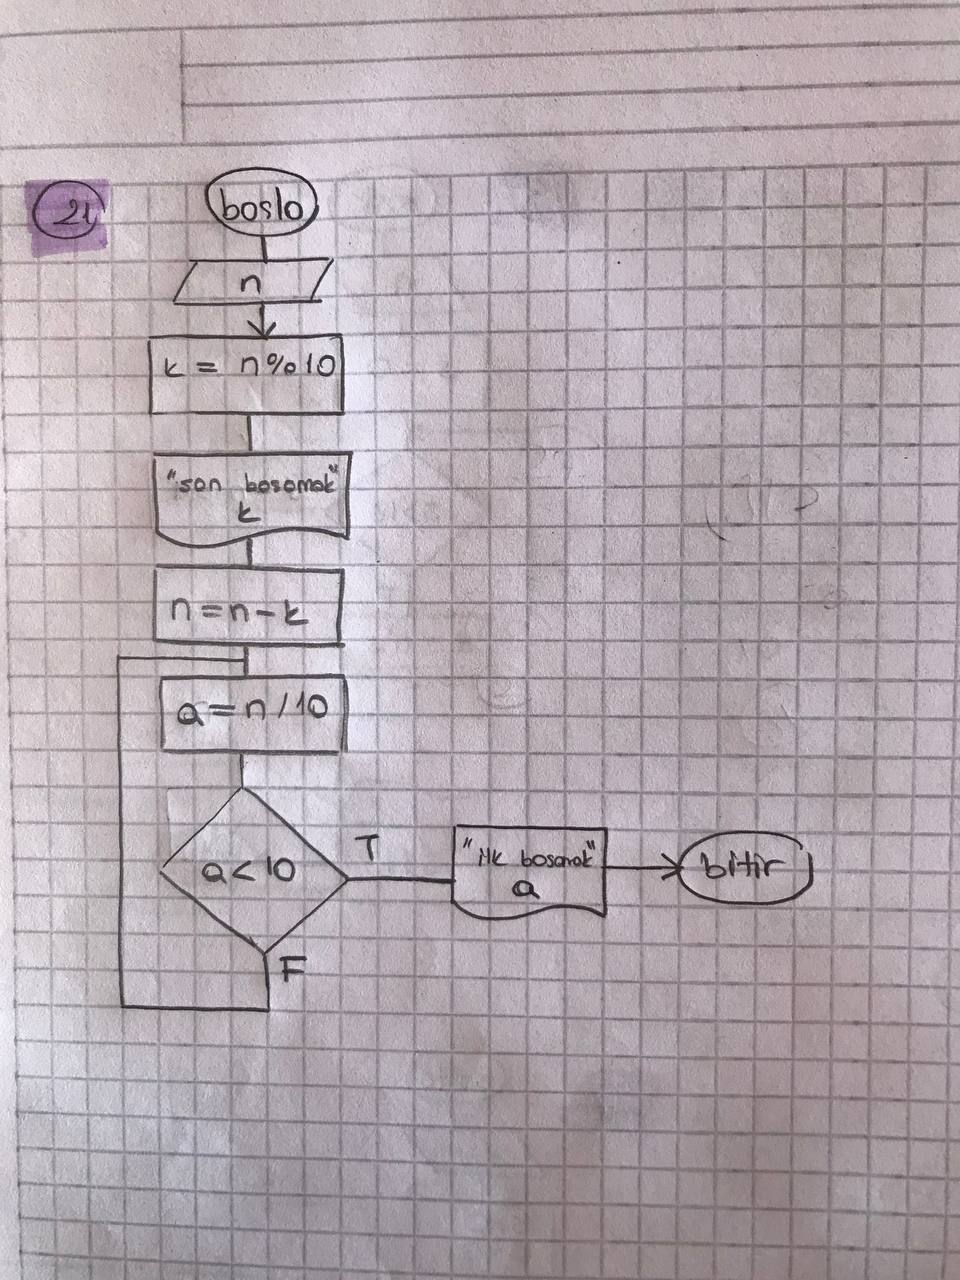 21
başla
n
k = n%10
"son basamak"
k
n = n - k
a = n / 10
a < 10
T
"ilk basamak"
a
bitir
F